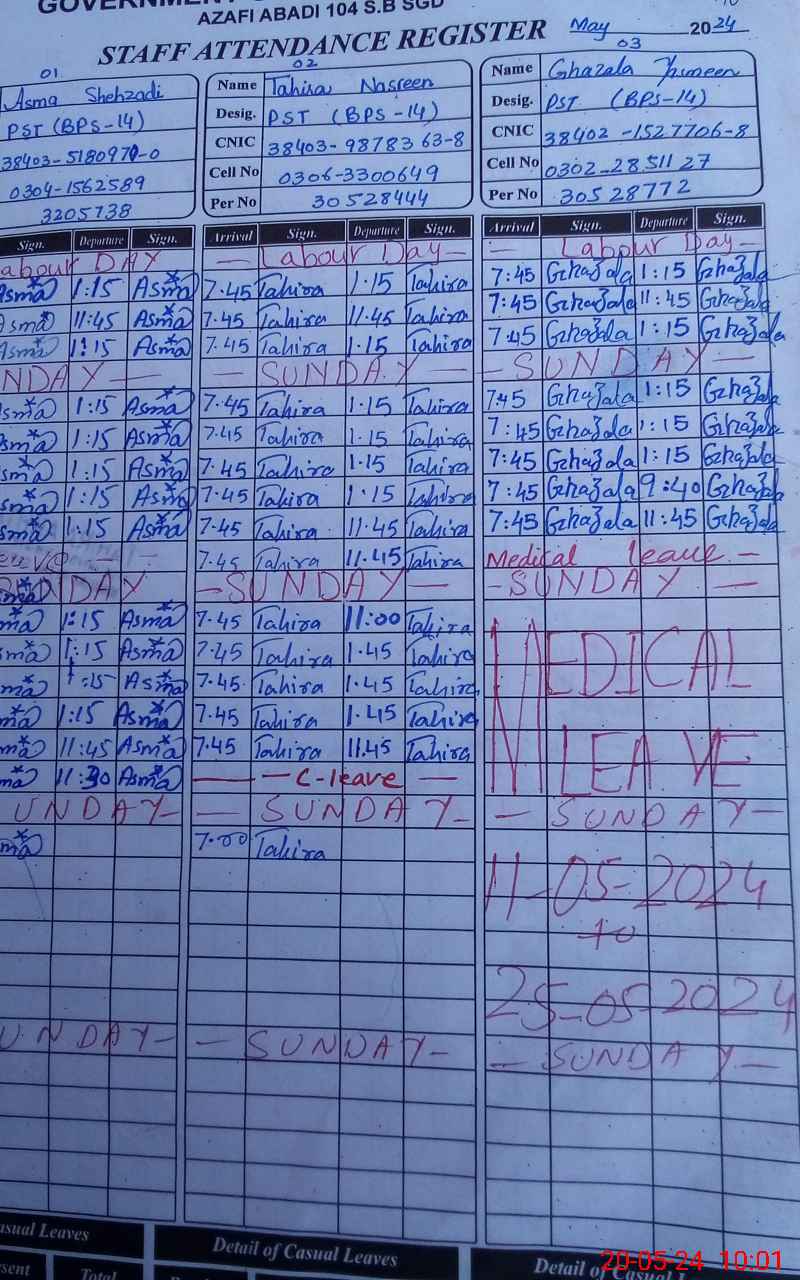 AZAFI ABADI 104 S.B SGD
STAFF ATTENDANCE REGISTER May 2024
01 02 03
Asma Shehzadi Name Tahira Nasreen Name Ghazala
PST (BPS-14) Desig. PST (BPS-14) Desig. PST (BPS-14)
CNIC 38403-9878363-8 CNIC 38402-1527706-8
0304-1562589 Cell No 0306-3300649 Cell No 0302-2851127
3205738 Per No 30528444 Per No 30528772
Sign. Departure Sign. Arrival Sign. Departure Sign. Arrival Sign. Departure Sign.
abour DAY — Labour Day — — Labour Day —
Asma 1:15 Asma 7.45 Tahira 1.15 Tahira 7:45 Ghazala 1:15 Ghazala
Asma 11:45 Asma 7.45 Tahira 11.45 Tahira 7:45 Ghazala 11:45 Ghazala
Asma 1:15 Asma 7.45 Tahira 1.15 Tahira 7:45 Ghazala 1:15 Ghazala
NDAY — — SUNDAY — — SUNDAY —
sma 1:15 Asma 7.45 Tahira 1.15 Tahira 7:45 Ghazala 1:15 Ghazala
sma 1:15 Asma 7.45 Tahira 1.15 Tahira 7:45 Ghazala 1:15 Ghazala
sma 1:15 Asma 7.45 Tahira 1.15 Tahira 7:45 Ghazala 1:15 Ghazala
sma 1:15 Asma 7.45 Tahira 1.15 Tahira 7:45 Ghazala 9:40 Ghazala
sma 1:15 Asma 7.45 Tahira 11.45 Tahira 7:45 Ghazala 11:45 Ghazala
7.45 Tahira 11.45 Tahira Medical leave —
DAY — SUNDAY — — SUNDAY —
ma 1:15 Asma 7.45 Tahira 11:00 Tahira
sma 1:15 Asma 7.45 Tahira 1.45 Tahira MEDICAL
ma 1:15 Asma 7.45 Tahira 1.45 Tahira
ma 1:15 Asma 7.45 Tahira 1.45 Tahira
ma 11:45 Asma 7.45 Tahira 11.45 Tahira LEAVE
ma 11:30 Asma — — C-leave —
UNDAY — — SUNDAY — — SUNDAY —
ma 7.00 Tahira
11-05-2024
to
25-05-2024
UNDAY — — SUNDAY — — SUNDAY —
asual Leaves Detail of Casual Leaves Detail of Casu
sent Total
20-05-24 10:01